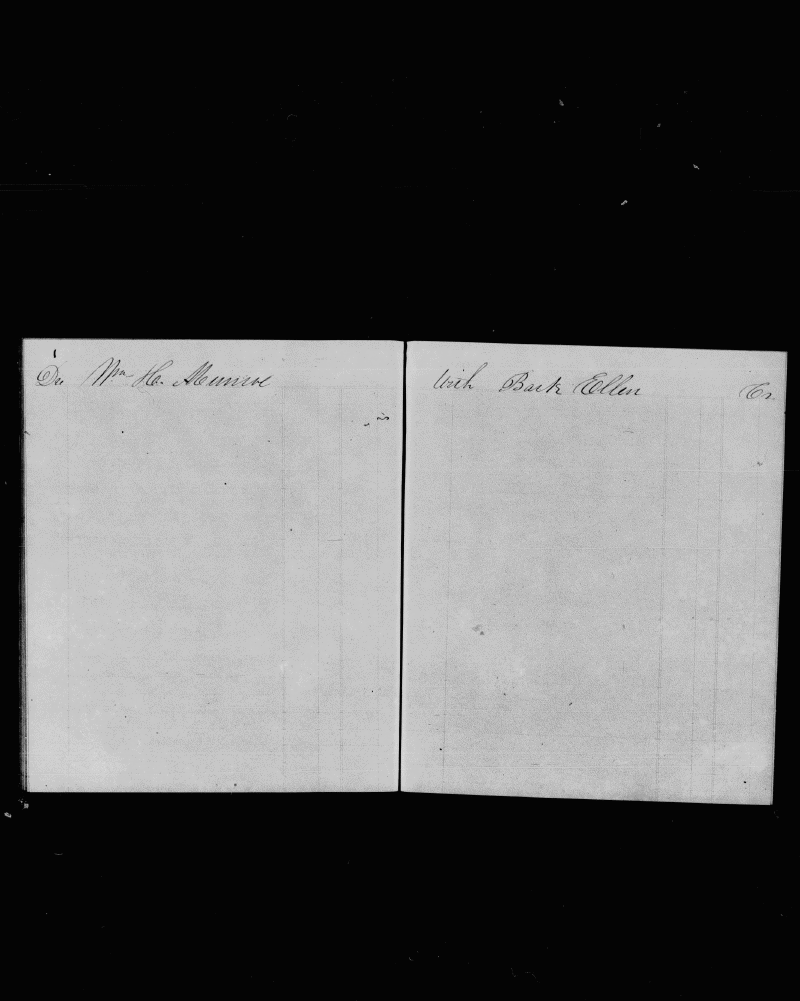 Dr Wm H. Munroe
With Bark Ellen Cr